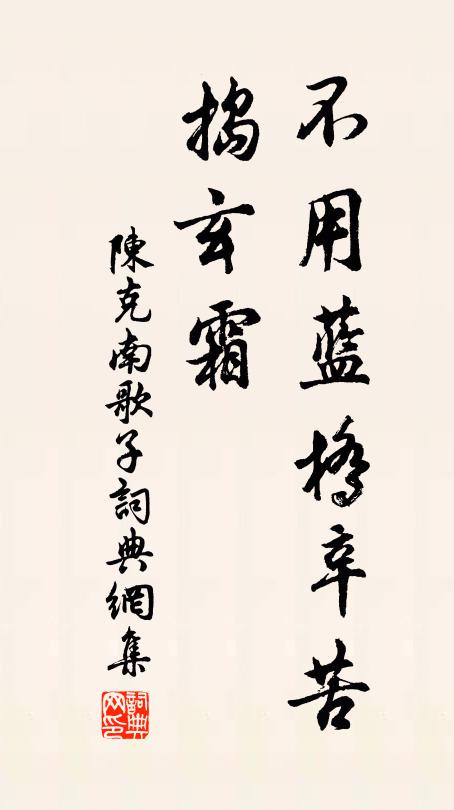 不用藍橋辛苦
搗玄霜
陳克南歌子詞典網集
詞典网印